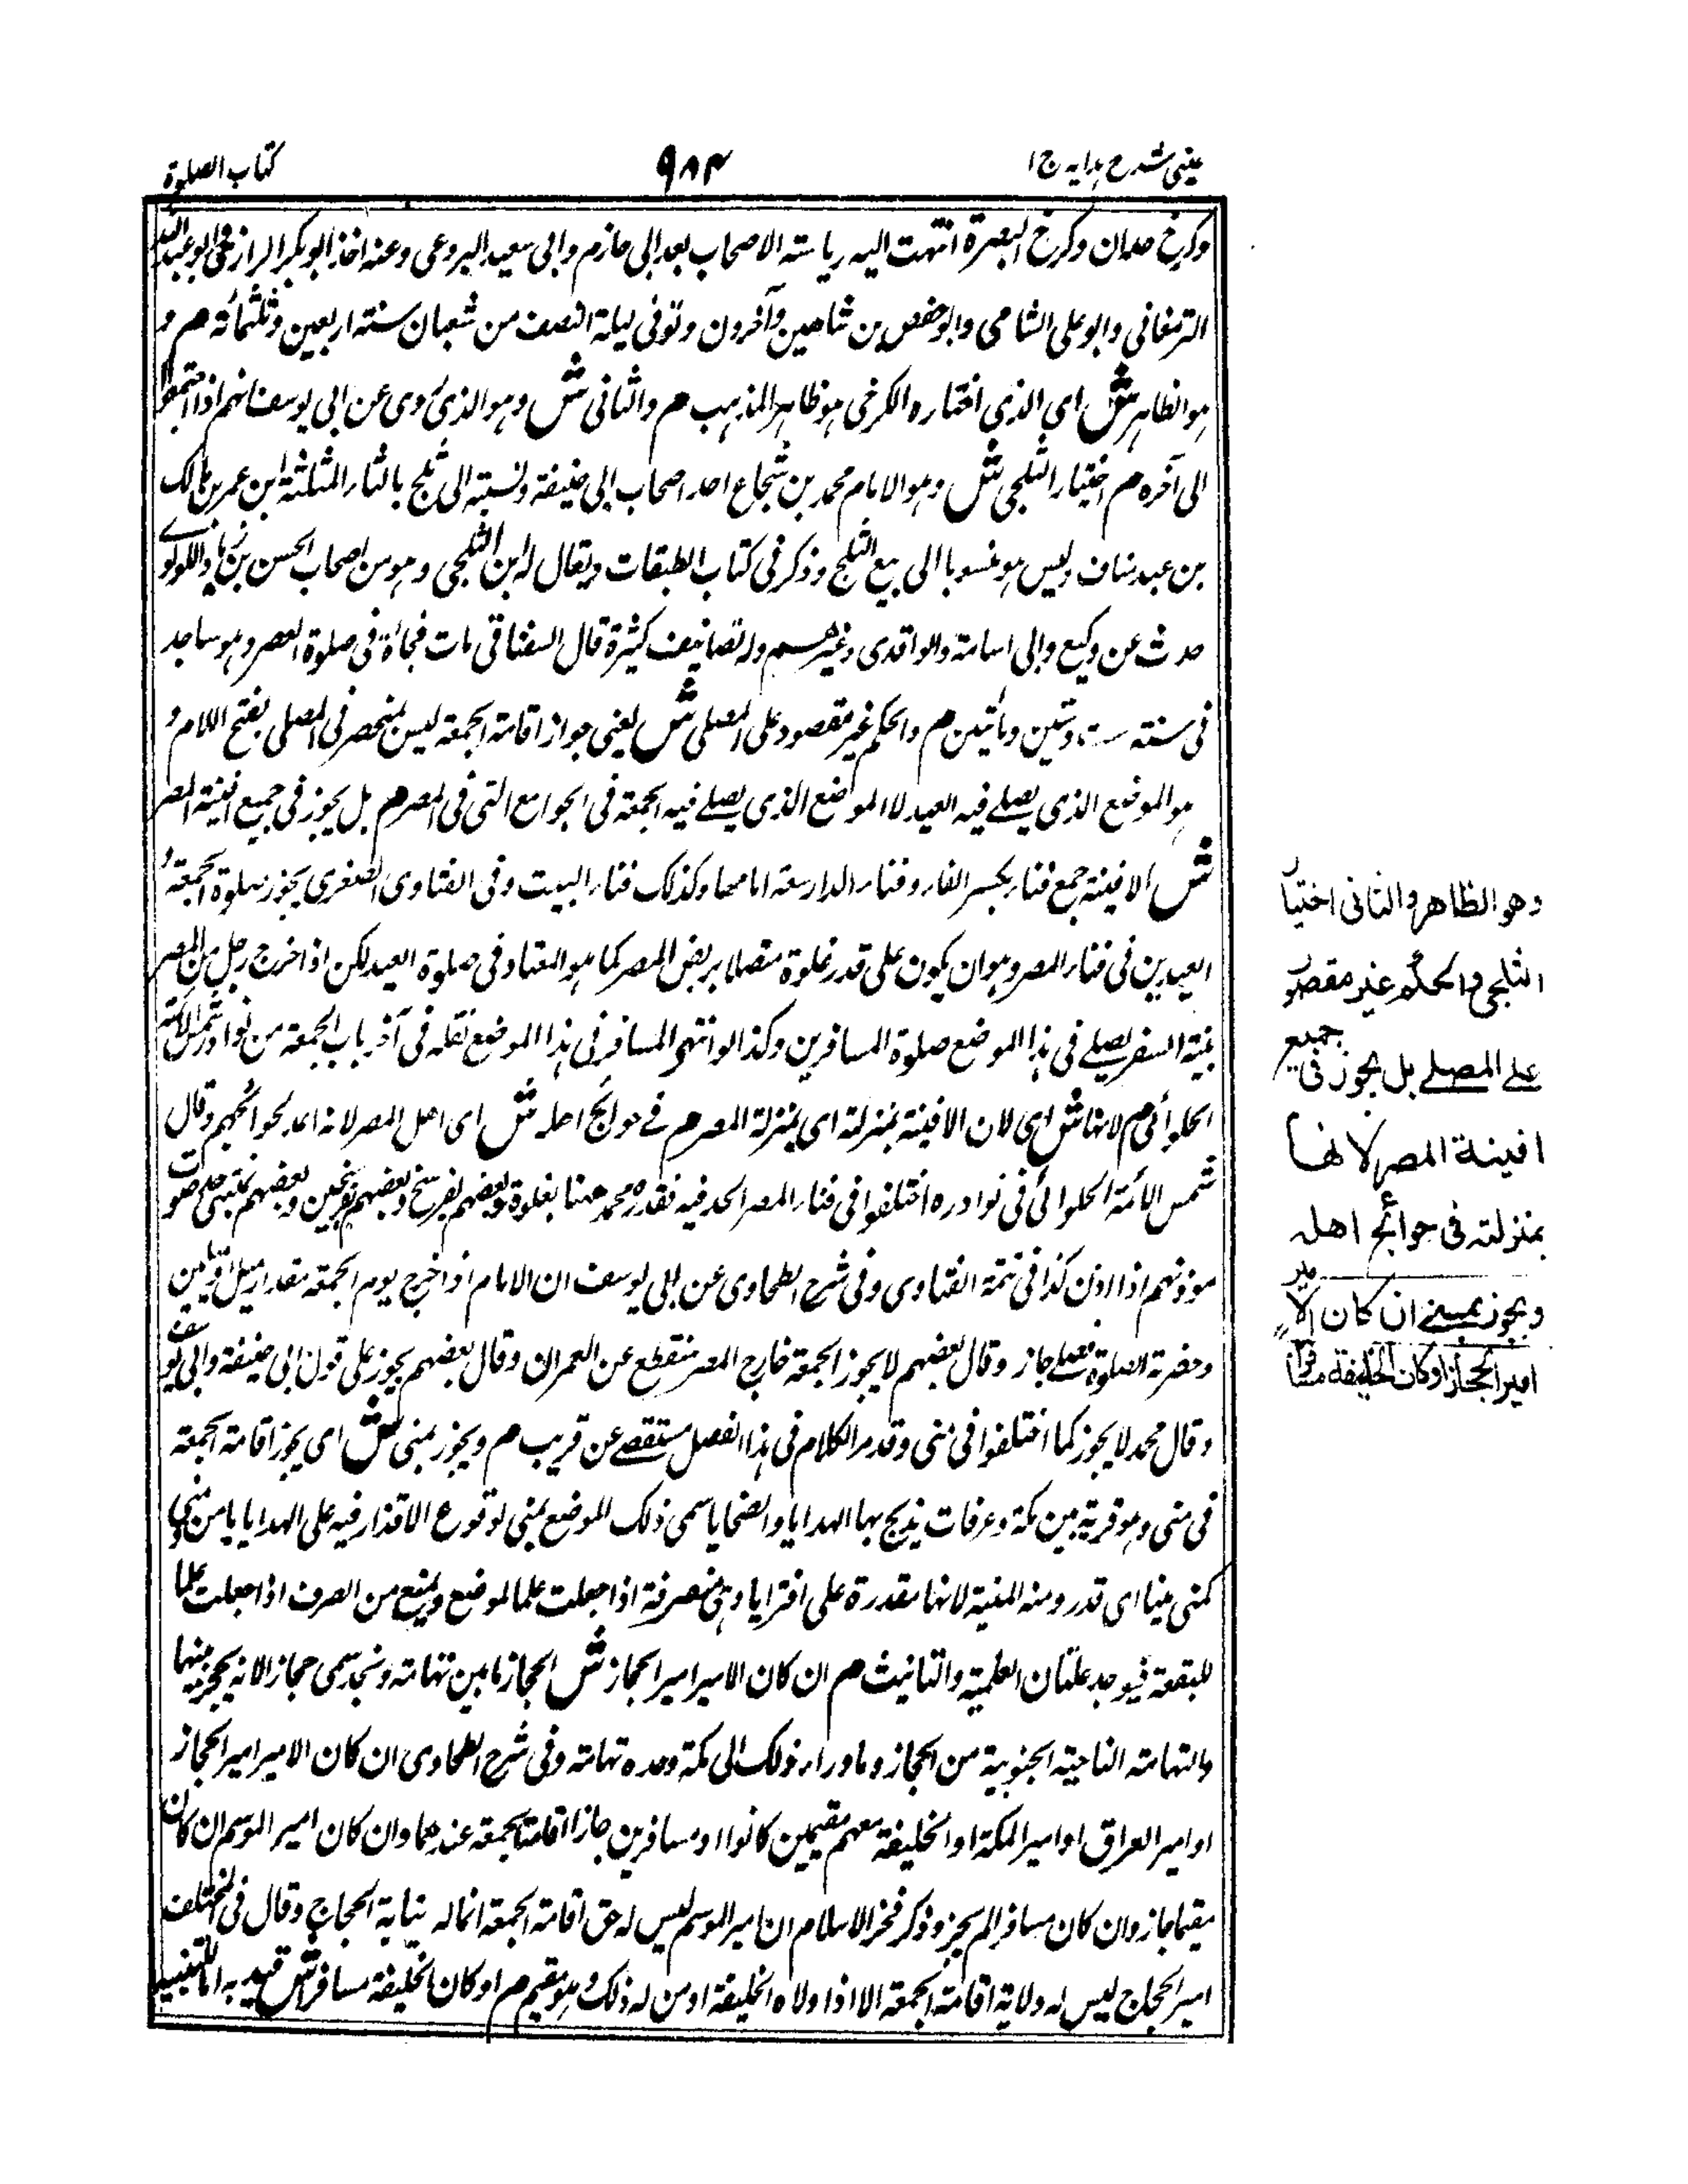 عينى شرح هدايه ج ا
٩٨٤
كتاب الصلوة
وكرخ جدان وكرخ البصرة انتهت اليه رياسته الاصحاب بعد ابى حازم وابى سعيد البروعى وعنه اخذ ابو بكر الرازى وابو عبد الله
الدمغانى وابو على الشامى وابو حفص بن شاهين وآخرون وتوفى ليلة النصف من شعبان سنته اربعين وثلثمائه هم و
هو الظاهر ش اى الذى اختاره الكرخى هو ظاهر المذهب م والثانى ش وهو الذى روى عن ابى يوسف انهم اذا اجتمعوا
الى آخره م اختيار الثلجى ش وهو الامام محمد بن شجاع احد اصحاب ابى حنيفة ونسبته الى ثلج بالثار المثلثة ابن عمر بن مالك
بن عبد مناف وليس هو منسوبا الى بيع الثلج وذكر فى كتاب الطبقات ويقال له ابن الثلجى وهو من اصحاب الحسن بن زياد اللولوى
حدث عن وكيع وابى اسامة والواقدى وغيرهم وله تصانيف كثيرة قال السغناقى مات فجأة فى صلوة العصر وهو ساجد
فى سنته ست وستين ومأتين م والحكم غير مقصود على المصلى ش يعنى جواز اقامة الجمعة ليس منحصر فى المصلى بفتح اللام و
هو الموضع الذى يصلے فيه العيد لا الموضع الذى يصلے فيه الجمعة فى الجوامع التى فى المصر م بل يجوز فى جميع افنية المصر
ش الافينة جمع فنار بكسر الفار وفنار الدار سعة امامها وكذلك فنار البيت وفى الفتاوى الصغرى يجوز صلوة الجمعة و
العيدين فى فنار المصر وهو ان يكون على قدر غلوة متصلا بربض المصر كما هو المعتاد فى صلوة العيد لكن اذا خرج رجل من المصر
بنية السفر يصلے فى هذا الموضع صلوة المسافرين وكذا لو انتهى المسافر فى هذا الموضع نقله فى آخر باب الجمعة من نوادر شمس الائمة
الحلوائى م لانها ش اى لان الافينة بمنزلته اى بمنزلة المصر م فے حوائج اهله ش اى اهل المصر لانه اعد لحوائجهم وقال
شمس الائمة الحلوائى فى نوادره اختلفوا فى فنار المصر الحد فيه فقدره محمد ههنا بغلوة وبعضهم بفرسخ وبعضهم بفرسخين وبعضهم بمنتهى صوت
موذنهم اذا اذن كذا فى تتمة الفتاوى وفى شرح الطحاوى عن ابى يوسف ان الامام اذا خرج يوم الجمعة مقدار ميل او ميلين
وحضرته الصلوة فصلے جاز وقال بعضهم لا يجوز الجمعة خارج المصر منقطع عن العمران وقال بعضهم يجوز على قول ابى حنيفة وابى يوسف
وقال محمد لا يجوز كما اختلفوا فى منى وقد مر الكلام فى هذا الفصل مستقصے عن قريب م ويجوز بمنى ش اى يجوز اقامة الجمعة
فى منى وهو قرية بين مكة وعرفات يذبح بها الهدايا والضحايا سمى ذلك الموضع بمنى لوقوع الاقدار فيه على الهدايا يا من منى
كمنى مينا اى قدر ومنه المنية لانها مقدرة على افترايا وهى منصرفة اذا جعلت علما لموضع ويمنع من الصرف اذا جعلت علما
للبقعة فيوجد علتان العلمية والتانيث م ان كان الامير امير الحجاز ش الحجاز ما بين تهامته ونجد سمى حجاز الانه يحجز بينها
والتهامته الناحية الجنوبية من الحجاز وما ورار ذلك الى مكة وحده تهامته وفى شرح الطحاوى ان كان الامير امير الحجاز
او امير العراق او امير المكة او الخليفة معهم مقيمين كانوا او مسافرين جاز اقامة الجمعة عندهما وان كان امير الموسم ان كان
مقيما جاز وان كان مسافرا لم يجز وذكر فخر الاسلام ان امير الموسم ليس له حق اقامة الجمعة انما له نيابة الحجاج وقال فى المختلف
امير الحجاج ليس له ولاية اقامة الجمعة الا اذا ولاه الخليفة او من له ذلك وهو مقيم م او كان الخليفة مسافرا ش قيد به اما للتنبيه
وهو الظاهر والثانى اختيار
الثلجى والحكم غير مقصور
على المصلے بل يجوز فى جميع
افينة المصر لانها
بمنزلته فى حوائج اهله
ويجوز بمنے ان كان الامير
امير الحجاز او كان الخليفة مسافرا